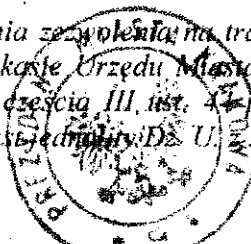 nia zezwolenia na tra
kasie Urzędu Miasta
częścią III ust. 44
st jednolity Dz. U.
PREZYDENT